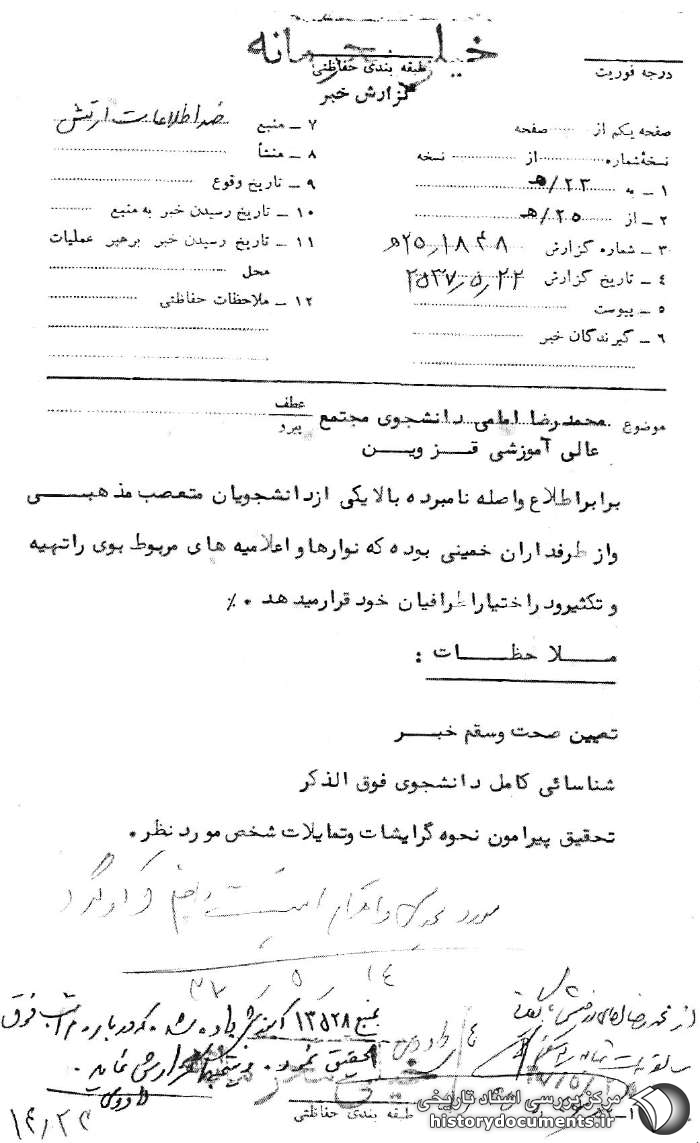 خیلی محرمانه
درجه فوریت
طبقه بندی حفاظتی
گزارش خبر
صفحه یکم از ........ صفحه
نسخهٔ شماره ........ از ........ نسخه
۱ ـ به ۲۳/هـ
۲ ـ از ۲۵/هـ
۳ ـ شماره گزارش ۲۵٫۱۸۴۸هـ
۴ ـ تاریخ گزارش ۲۵۳۷٫۵٫۲۲
۵ ـ پیوست
۶ ـ گیرندگان خبر
۷ ـ منبع ضد اطلاعات ارتش
۸ ـ منشأ
۹ ـ تاریخ وقوع
۱۰ ـ تاریخ رسیدن خبر به منبع
۱۱ ـ تاریخ رسیدن خبر برهبر عملیات
محل
۱۲ ـ ملاحظات حفاظتی
موضوع محمد رضا امامی دانشجوی مجتمع عطف
پیرو
عالی آموزشی قـزویـن
برابر اطلاع واصله نامبرده بالا یکی از دانشجویان متعصب مذهبـــی
و از طرفداران خمینی بوده که نوارها و اعلامیه های مربوط بوی را تهیه
و تکثیر و در اختیار اطرافیان خود قرار میدهد ۰ ٪
مـــلا حظـــات :
تعیین صحت وسقم خبـــر
شناسائی کامل دانشجوی فوق الذکر
تحقیق پیرامون نحوه گرایشات و تمایلات شخص مورد نظر .
۱۴ / ۵ / ۳۷
بمنبع ۱۳۵۲۸ آموزش داده شد که درباره مراتب فوق
تحقیق نموده و نتیجه را گزارش نماید .
داودی
۱۴/۲۴
خیلی محرمانه
طبقه بندی حفاظتی
مرکز بررسی اسناد تاریخی
historydocuments.ir